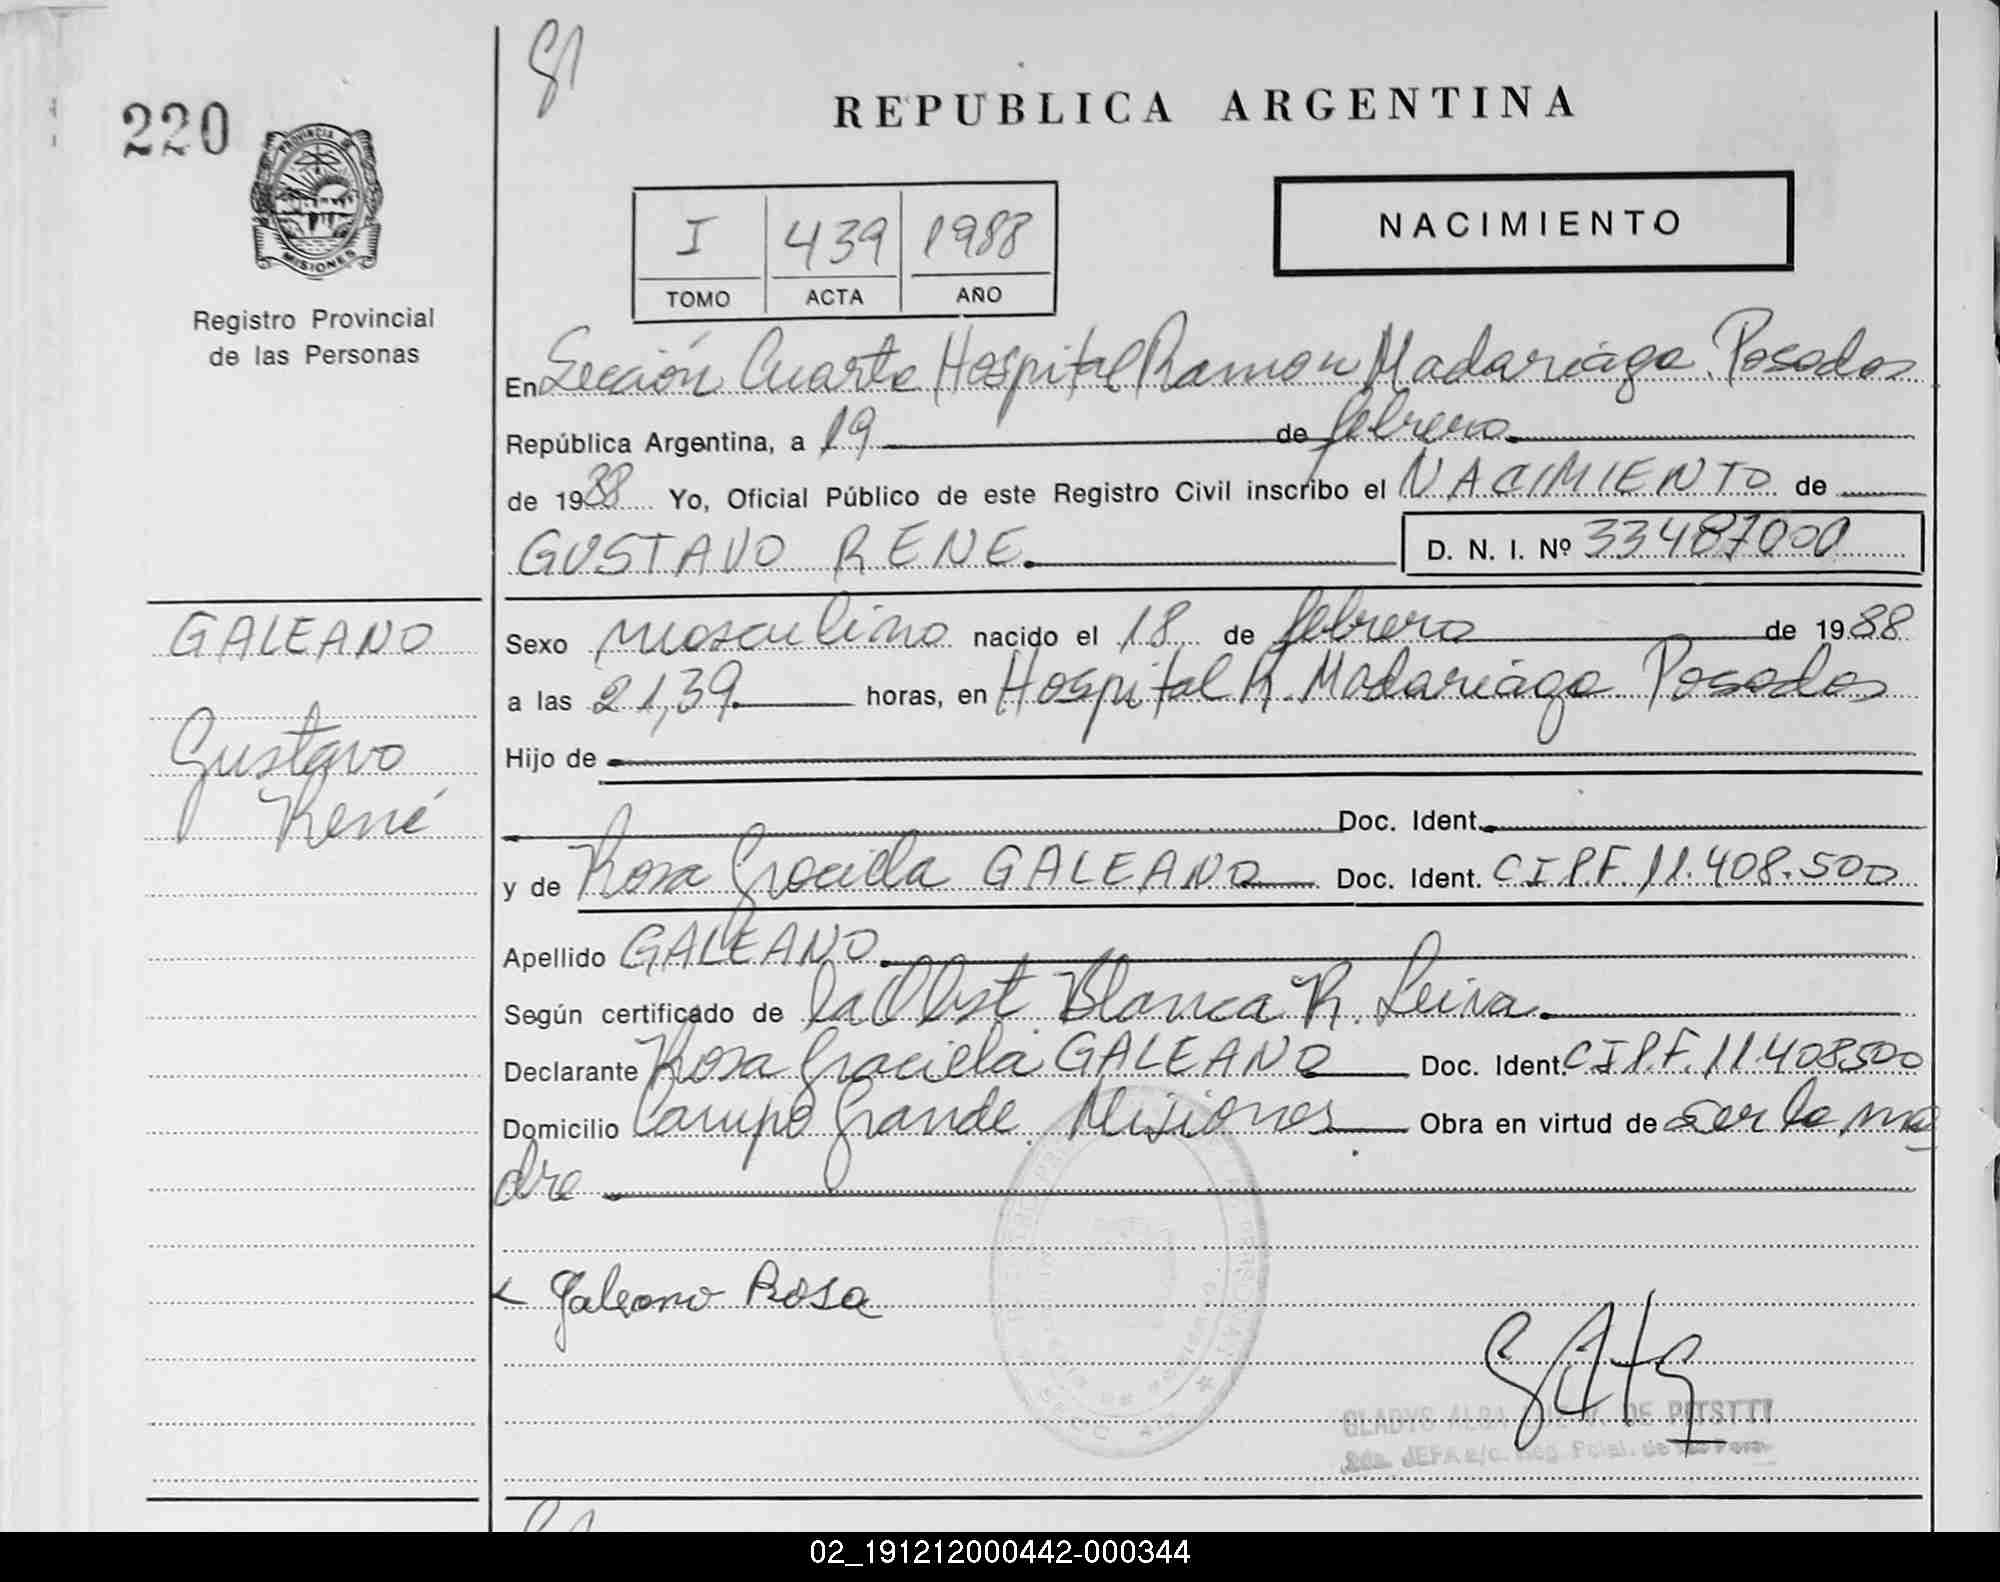 220
REPUBLICA ARGENTINA
PROVINCIA DE
MISIONES
Registro Provincial
de las Personas
I 439 1988
TOMO ACTA AÑO
NACIMIENTO
En Sección Cuarta Hospital Ramon Madariaga Posadas
República Argentina, a 19 de febrero
de 1988 Yo, Oficial Público de este Registro Civil inscribo el NACIMIENTO de
GUSTAVO RENE. D. N. I. Nº 33487000
GALEANO
Gustavo
René
Sexo masculino nacido el 18 de febrero de 1988
a las 21,39 horas, en Hospital R. Madariaga Posadas
Hijo de
Doc. Ident.
y de Rosa Graciela GALEANO Doc. Ident. CIPF 11.408.500
Apellido GALEANO
Según certificado de la Obst Blanca R. Leiva.
Declarante Rosa Graciela GALEANO Doc. Ident. CIPF. 11408500
Domicilio Campo Grande Misiones Obra en virtud de ser la ma
dre
Galeano Rosa
GLADYS ALBA V. DE
JEFA
02_191212000442-000344